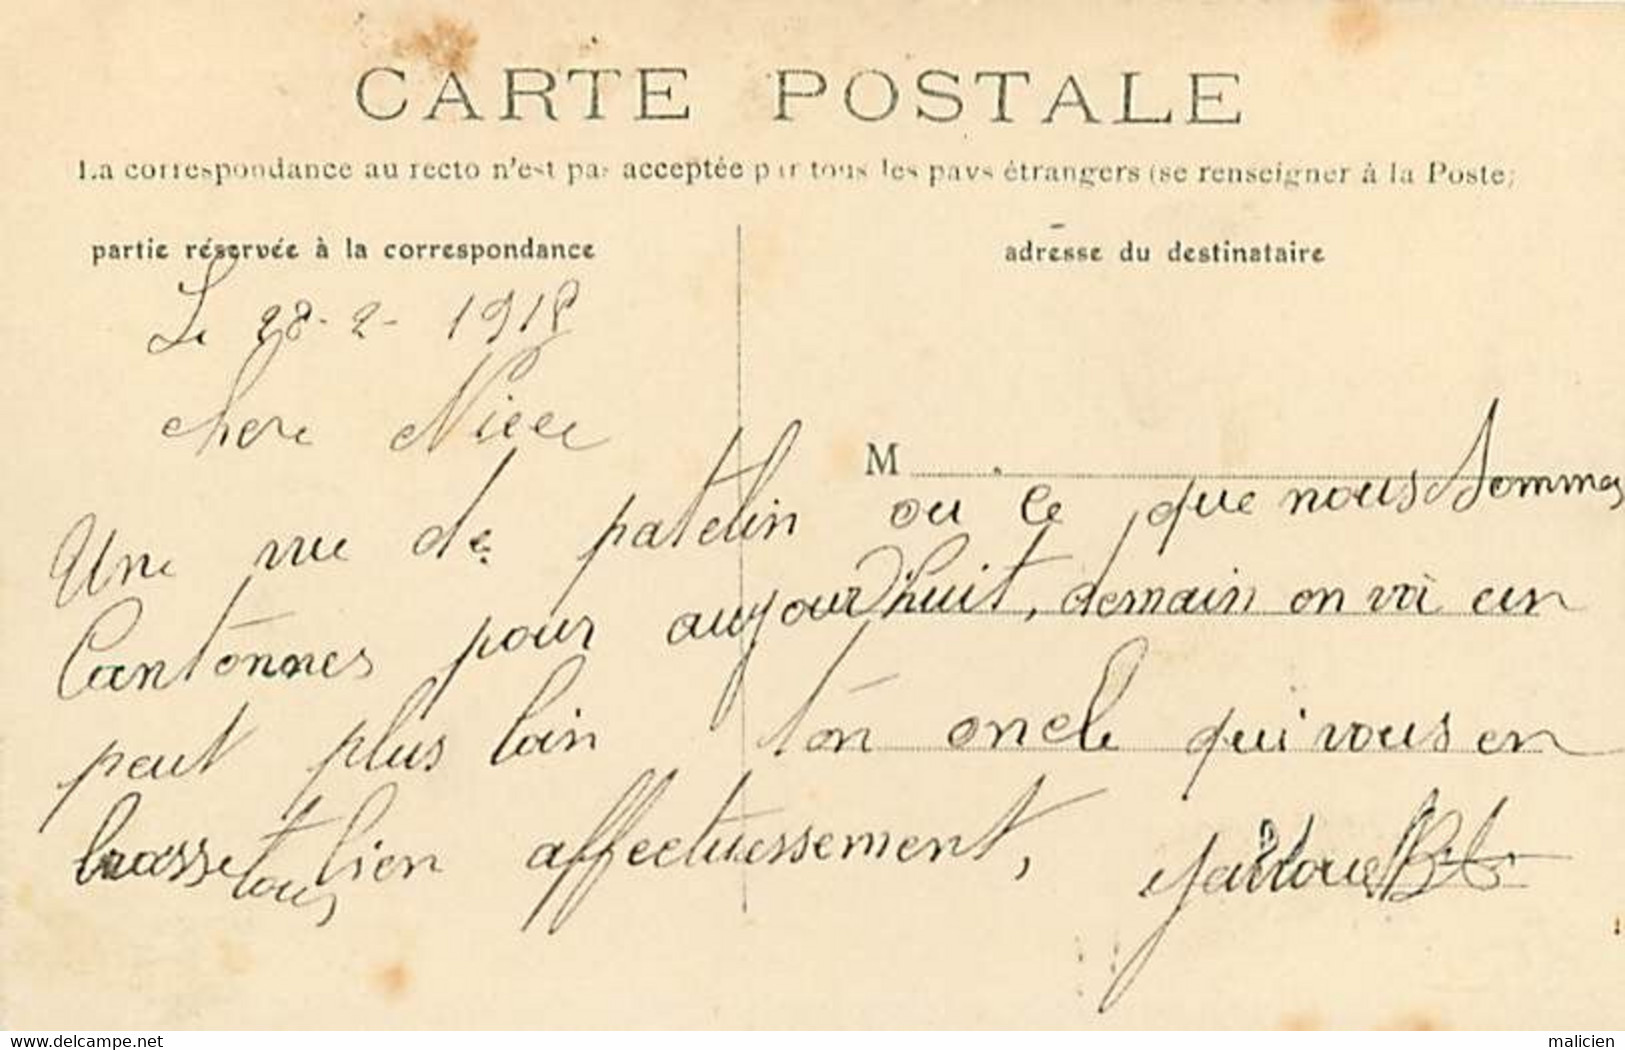 CARTE POSTALE
La correspondance au recto n'est pas acceptée par tous les pays étrangers (se renseigner à la Poste)
partie réservée à la correspondance
adresse du destinataire
Le 28-2-1918
chere Niece
M
Une vue de patelin ou ce que nous Sommes
Cantonnes pour aujourd'huit, demain on va un
peut plus loin ton oncle qui vous en
brasse tous bien affectuessement,
www.delcampe.net
malicien